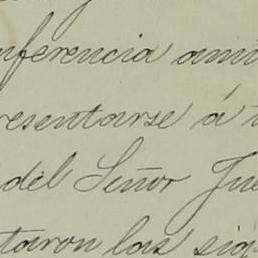 nferencia ami
resentarse á
del Señor Jue
taron las sig